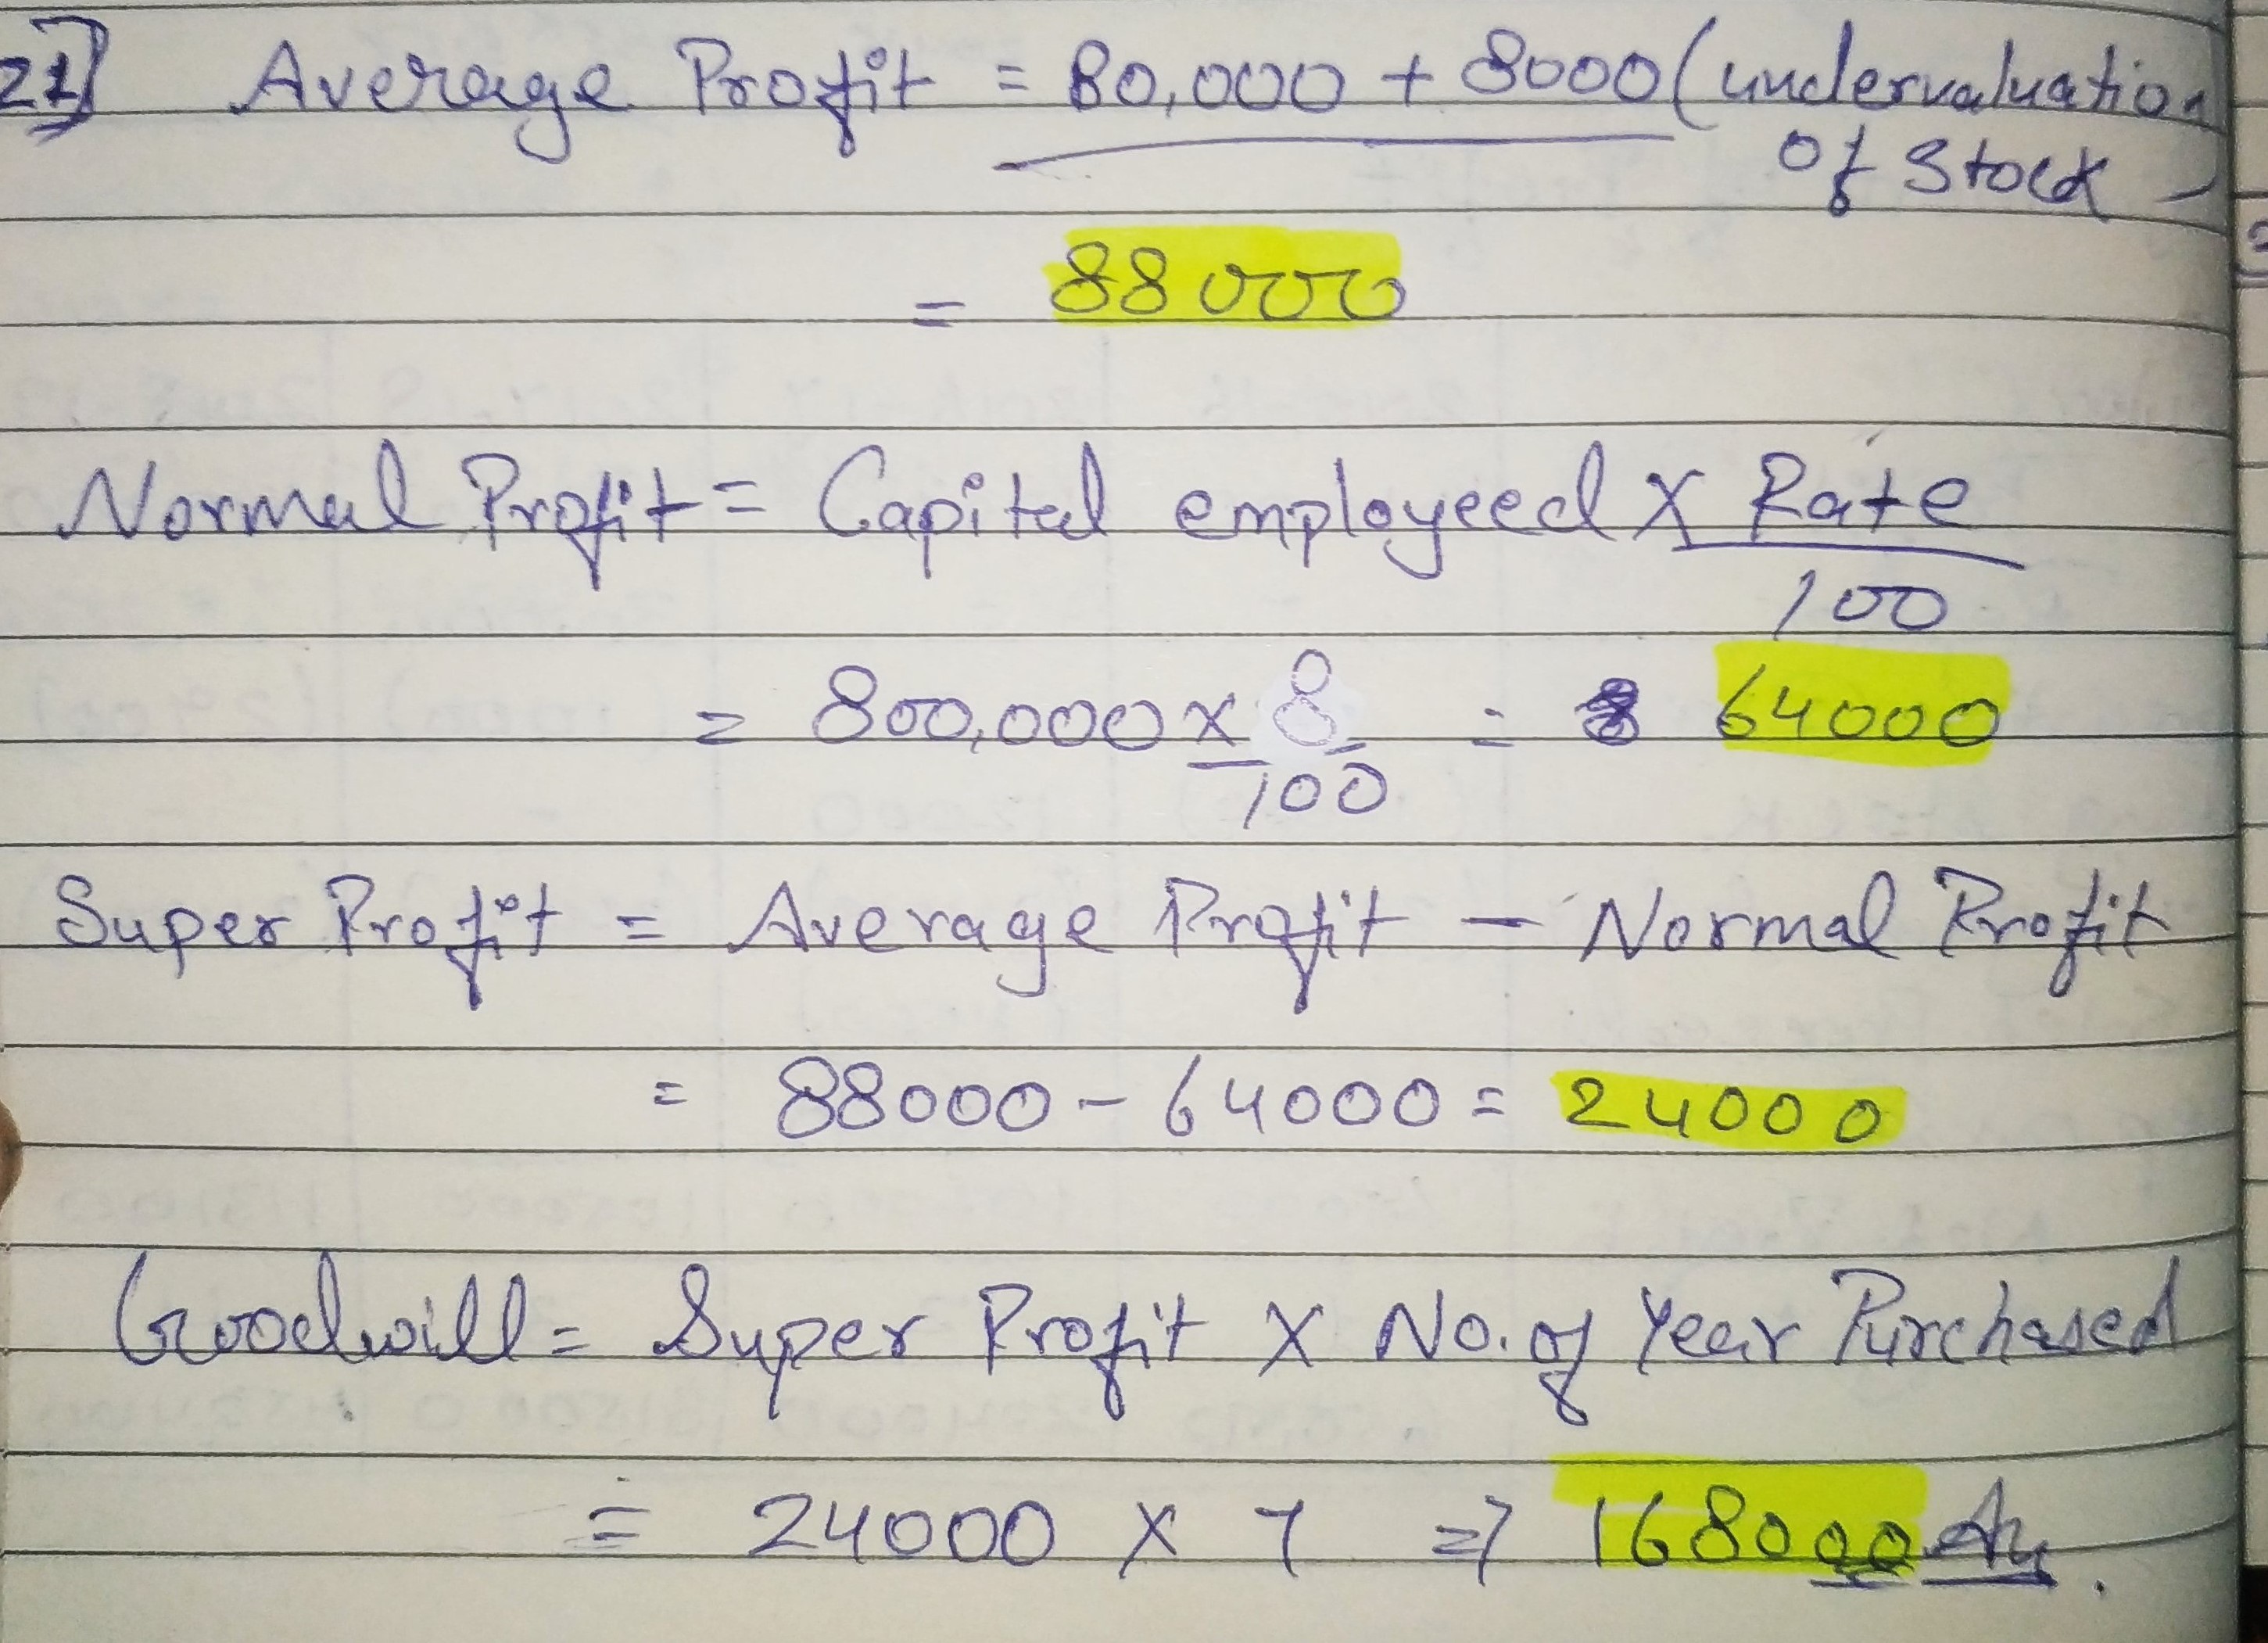 21] Average Profit = 80,000 + 8000 (undervaluation
of Stock)
= 88000
Normal Profit = Capital employeed X Rate
100
= 800,000 x 8 = 64000
100
Super Profit = Average Profit - Normal Profit
= 88000 - 64000 = 24000
Goodwill = Super Profit X No. of Year Purchased
= 24000 X 7 => 168000 Ans.